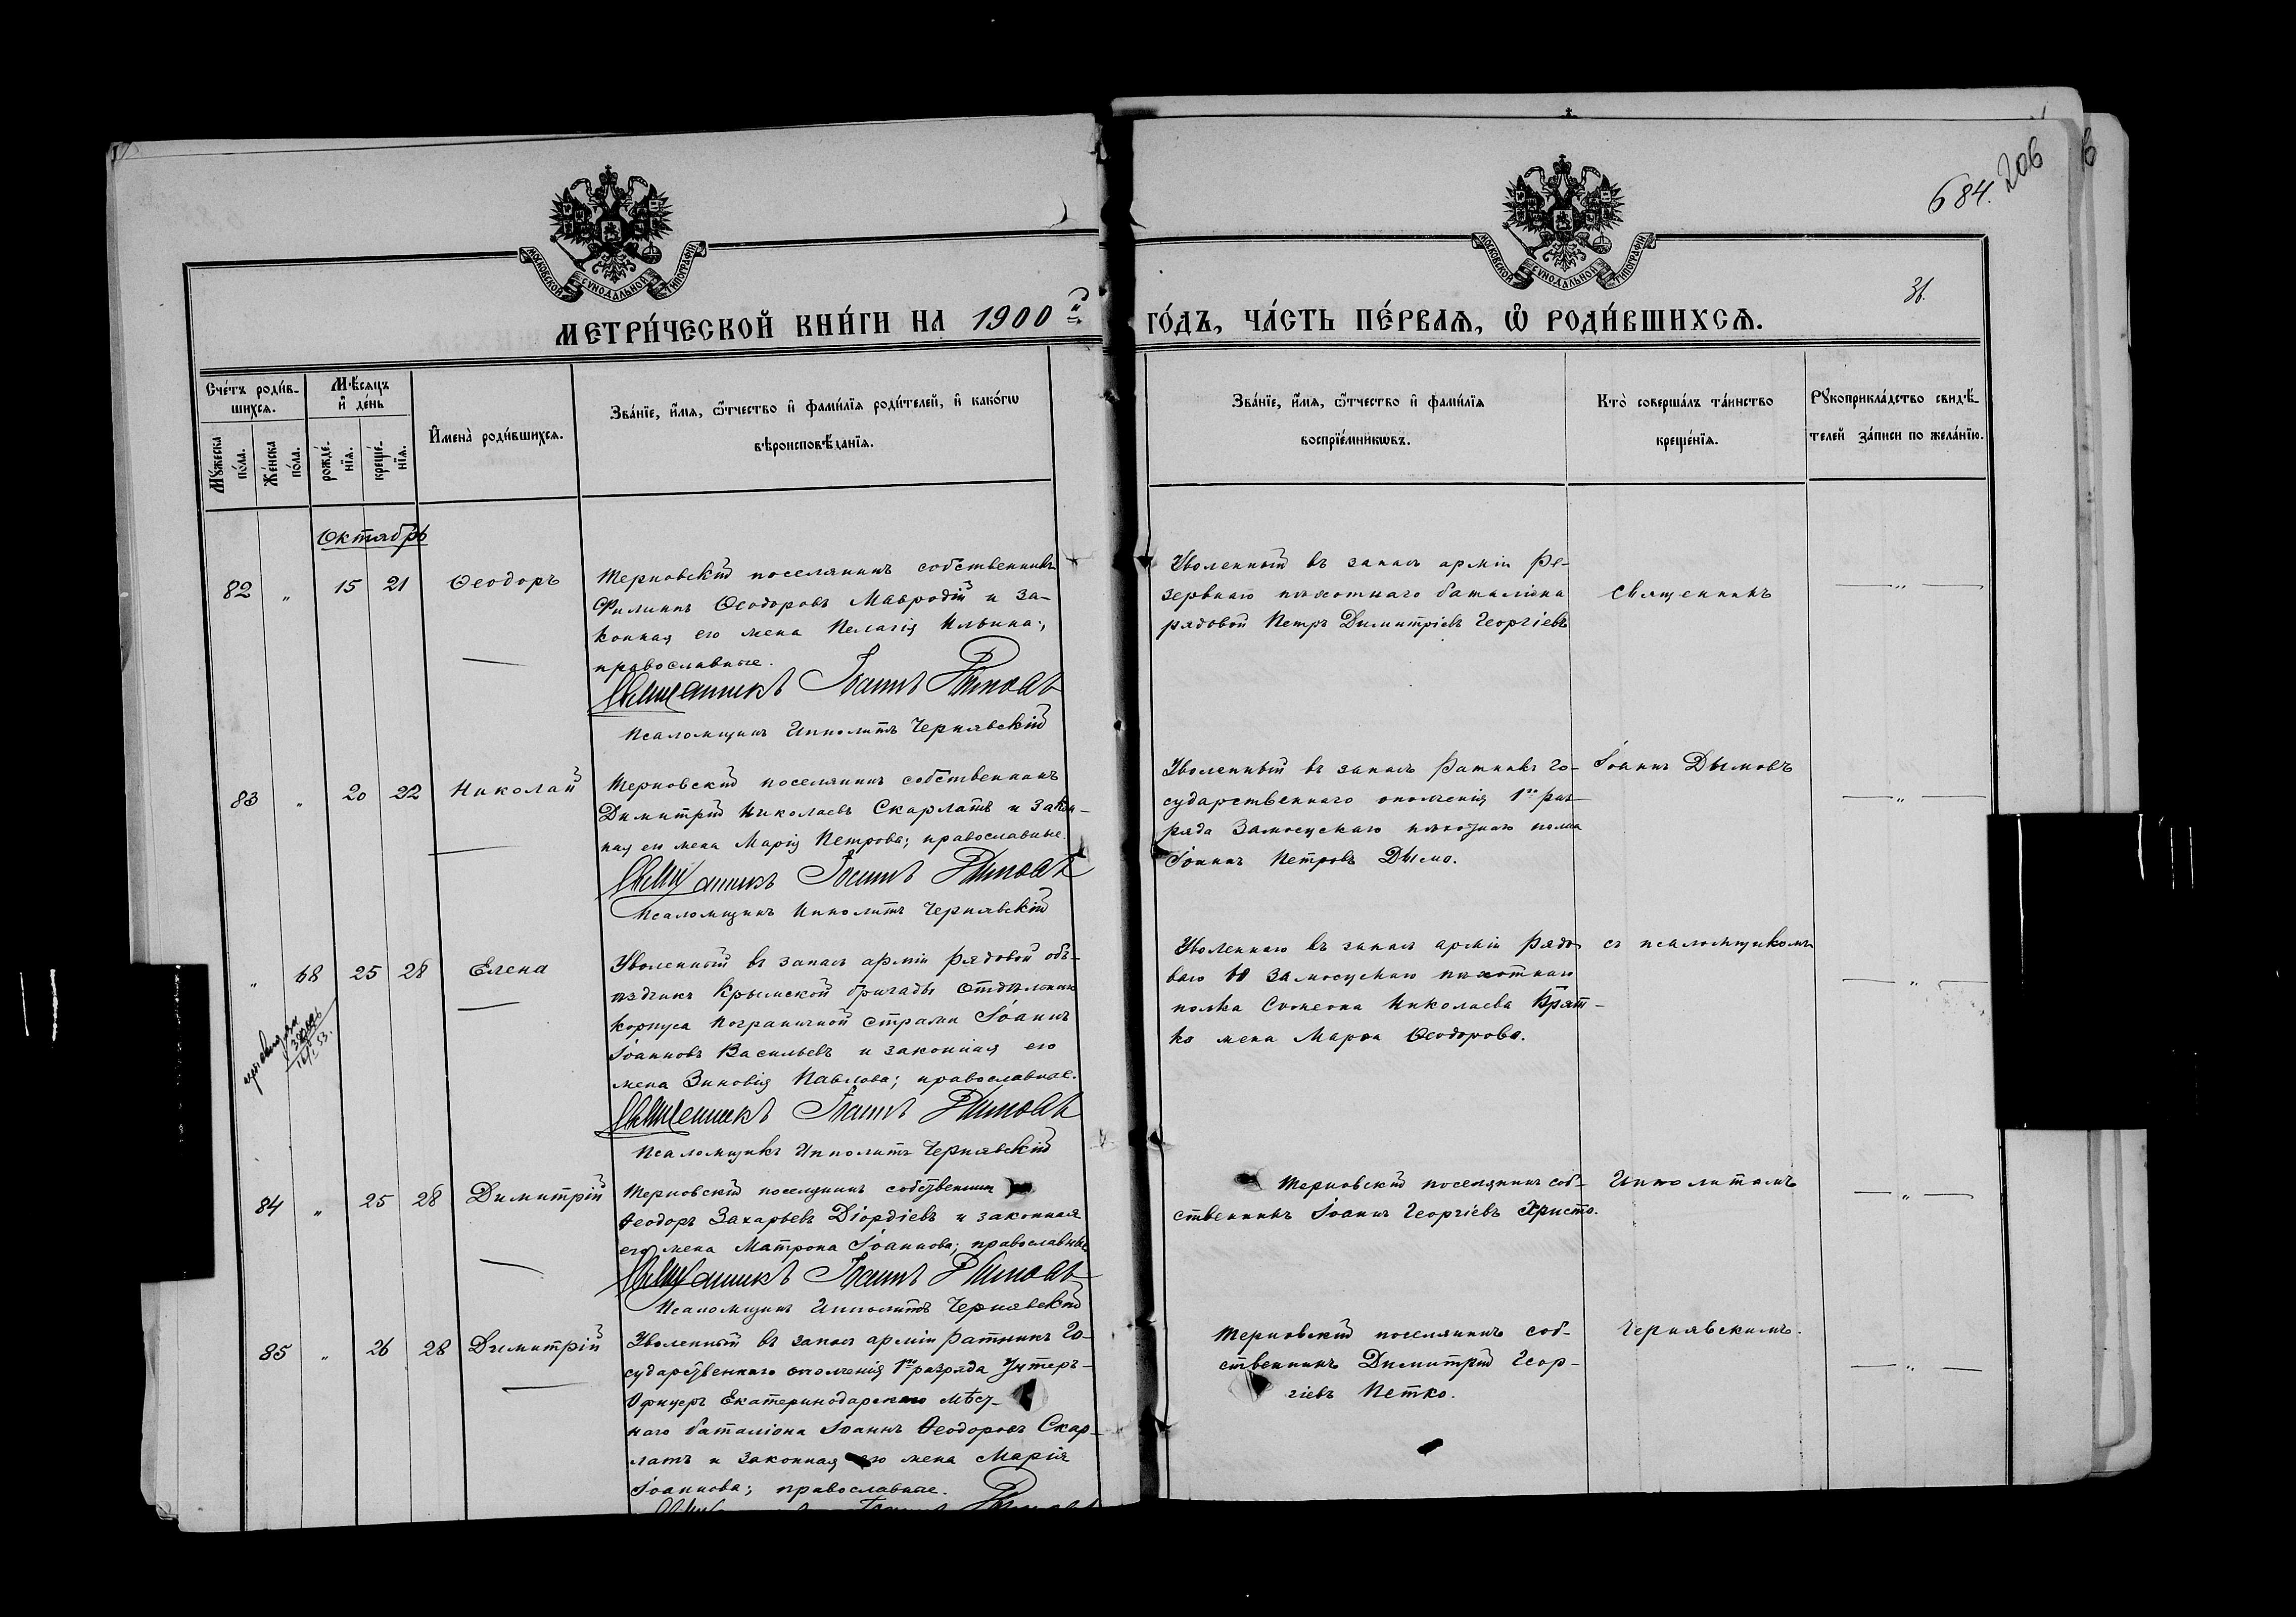 684. 206
31.
МОСКОВСКОЙ СУНОДАЛЬНОЙ ТИПОГРАФІИ
МОСКОВСКОЙ СУНОДАЛЬНОЙ ТИПОГРАФІИ
МЕТРИ́ЧЕСКОЙ КНИ́ГИ НА 1900й
ГО́ДЪ, ЧА́СТЬ ПЕ́РВАѦ, Ѡ РОДИ́ВШИХСѦ.
Сче́тъ роди́в-
шихсѧ.
Мѣ́сяцъ
и҆ де́нь
Мꙋ́жеска
по́ла.
Же́нска
по́ла.
рожде́-
нїѧ.
креще́-
нїѧ.
И҆мена̀ роди́вшихсѧ.
Зва́нїе, и҆́мѧ, ѿтчество и҆ фами́лїѧ роди́телей, и҆ како́гѡ
вѣроисповѣ́данїѧ.
Зва́нїе, и҆́мѧ, ѿтчество и҆ фами́лїѧ
воспрїе́мникѡвъ.
Кто̀ соверша́лъ та́инство
креще́нїѧ.
Рꙋкоприкла́дство свидѣ́-
телей за́писи по жела́нїю.
Октябрь
82 " 15 21 Ѳеодоръ
Терновскій поселянинъ собственникъ
Филиппъ Ѳеодоровъ Мавродій и за-
конная его жена Пелагія Ильина;
православные.
Священникъ Іоаннъ Дымовъ
Псаломщикъ Ипполитъ Чернявскій
Уволенный въ запасъ арміи Ре-
зервнаго пѣхотнаго баталіона
рядовой Петръ Димитріевъ Георгіевъ
Священникъ
— " —
83 " 20 22 Николай
Терновскій поселянинъ собственникъ
Димитрій Николаевъ Скарлатъ и закон-
ная его жена Марія Петрова; православные.
Священникъ Іоаннъ Дымовъ
Псаломщикъ Ипполитъ Чернявскій
Уволенный въ запасъ Ратникъ го-
сударственнаго ополченія 1го раз-
ряда Замосцскаго пѣхотнаго полка
Іоаннъ Петровъ Дымо.
Іоаннъ Дымовъ
— " —
" 68 25 28 Елена
Уволенный въ запасъ арміи рядовой объ-
ѣздчикъ Крымской бригады Отдѣльнаго
корпуса пограничной стражи Іоаннъ
Іоанновъ Васильевъ и законная его
жена Зиновія Павлова; православные.
Священникъ Іоаннъ Дымовъ
Псаломщикъ Ипполитъ Чернявскій
Уволеннаго въ запасъ арміи рядо-
ваго Замосцскаго пѣхотнаго
полка Симеона Николаева Крят-
ко жена Марѳа Ѳеодорова.
съ псаломщикомъ
— " —
84 " 25 28 Димитрій
Терновскій поселянинъ собственникъ
Ѳеодоръ Захарьевъ Діордіевъ и законная
его жена Матрона Іоаннова; православные
Священникъ Іоаннъ Дымовъ
Псаломщикъ Ипполитъ Чернявскій
Терновскій поселянинъ соб-
ственникъ Іоаннъ Георгіевъ Христо.
Ипполитомъ
— " —
85 " 26 28 Димитрій
Уволенный въ запасъ арміи ратникъ Го-
сударственнаго ополченія 1го разряда Унтеръ-
Офицеръ Екатеринодарскаго мѣст-
наго баталіона Іоаннъ Ѳеодоровъ Скар-
латъ и законная его жена Марія
Іоаннова; православные.
Терновскій поселянинъ соб-
ственникъ Димитрій Геор-
гіевъ Петко.
Чернявскимъ.
— " —